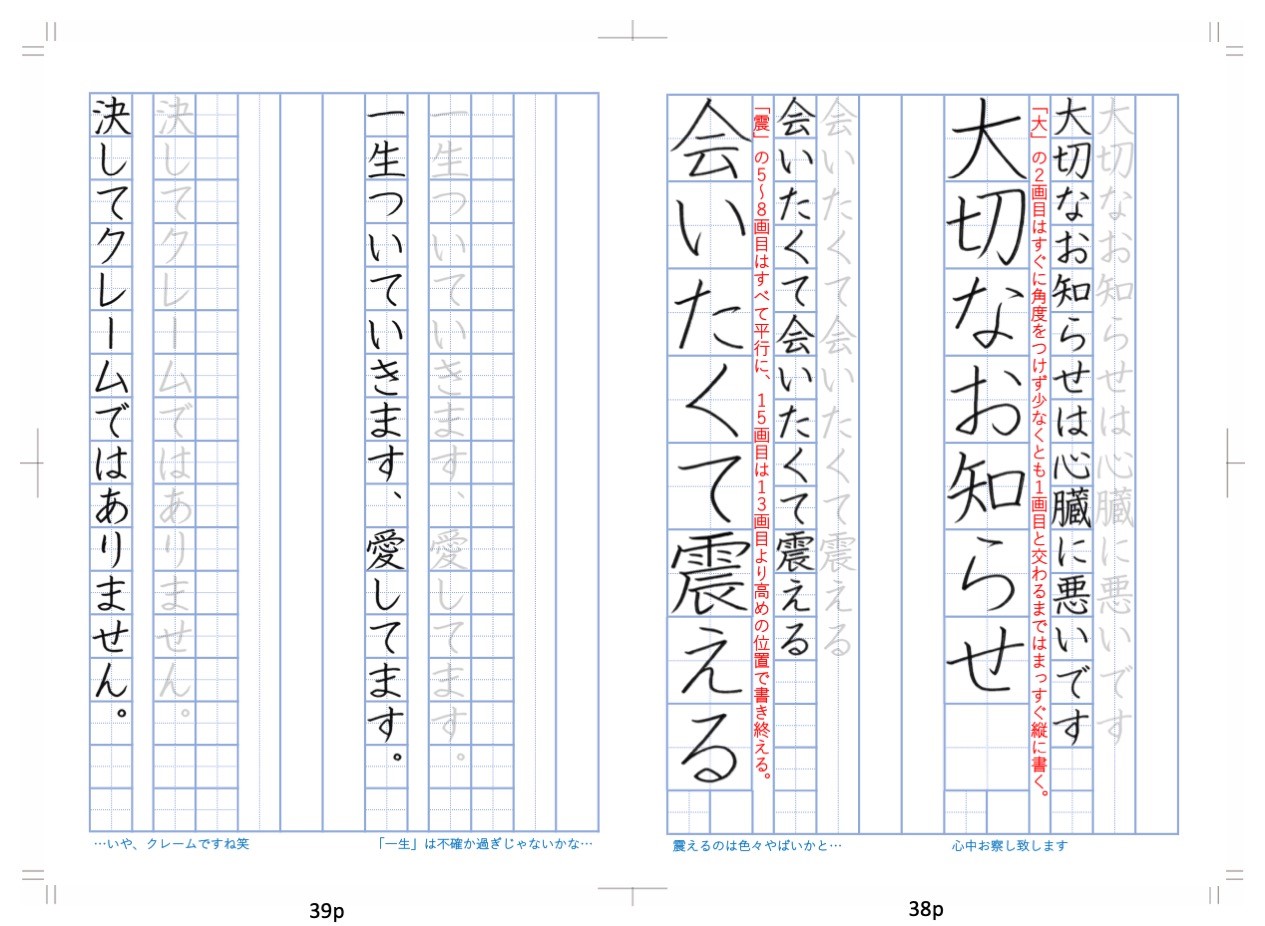 大切なお知らせは心臓に悪いです
大切なお知らせは心臓に悪いです
「大」の2画目はすぐに角度をつけず少なくとも1画目と交わるまではまっすぐ縦に書く。
大切なお知らせ
心中お察し致します
会いたくて会いたくて震える
会いたくて会いたくて震える
「震」の5～8画目はすべて平行に、15画目は13画目より高めの位置で書き終える。
会いたくて震える
震えるのは色々やばいかと…
38p
一生ついていきます、愛してます。
一生ついていきます、愛してます。
「一生」は不確か過ぎじゃないかな…
決してクレームではありません。
決してクレームではありません。
…いや、クレームですね笑
39p